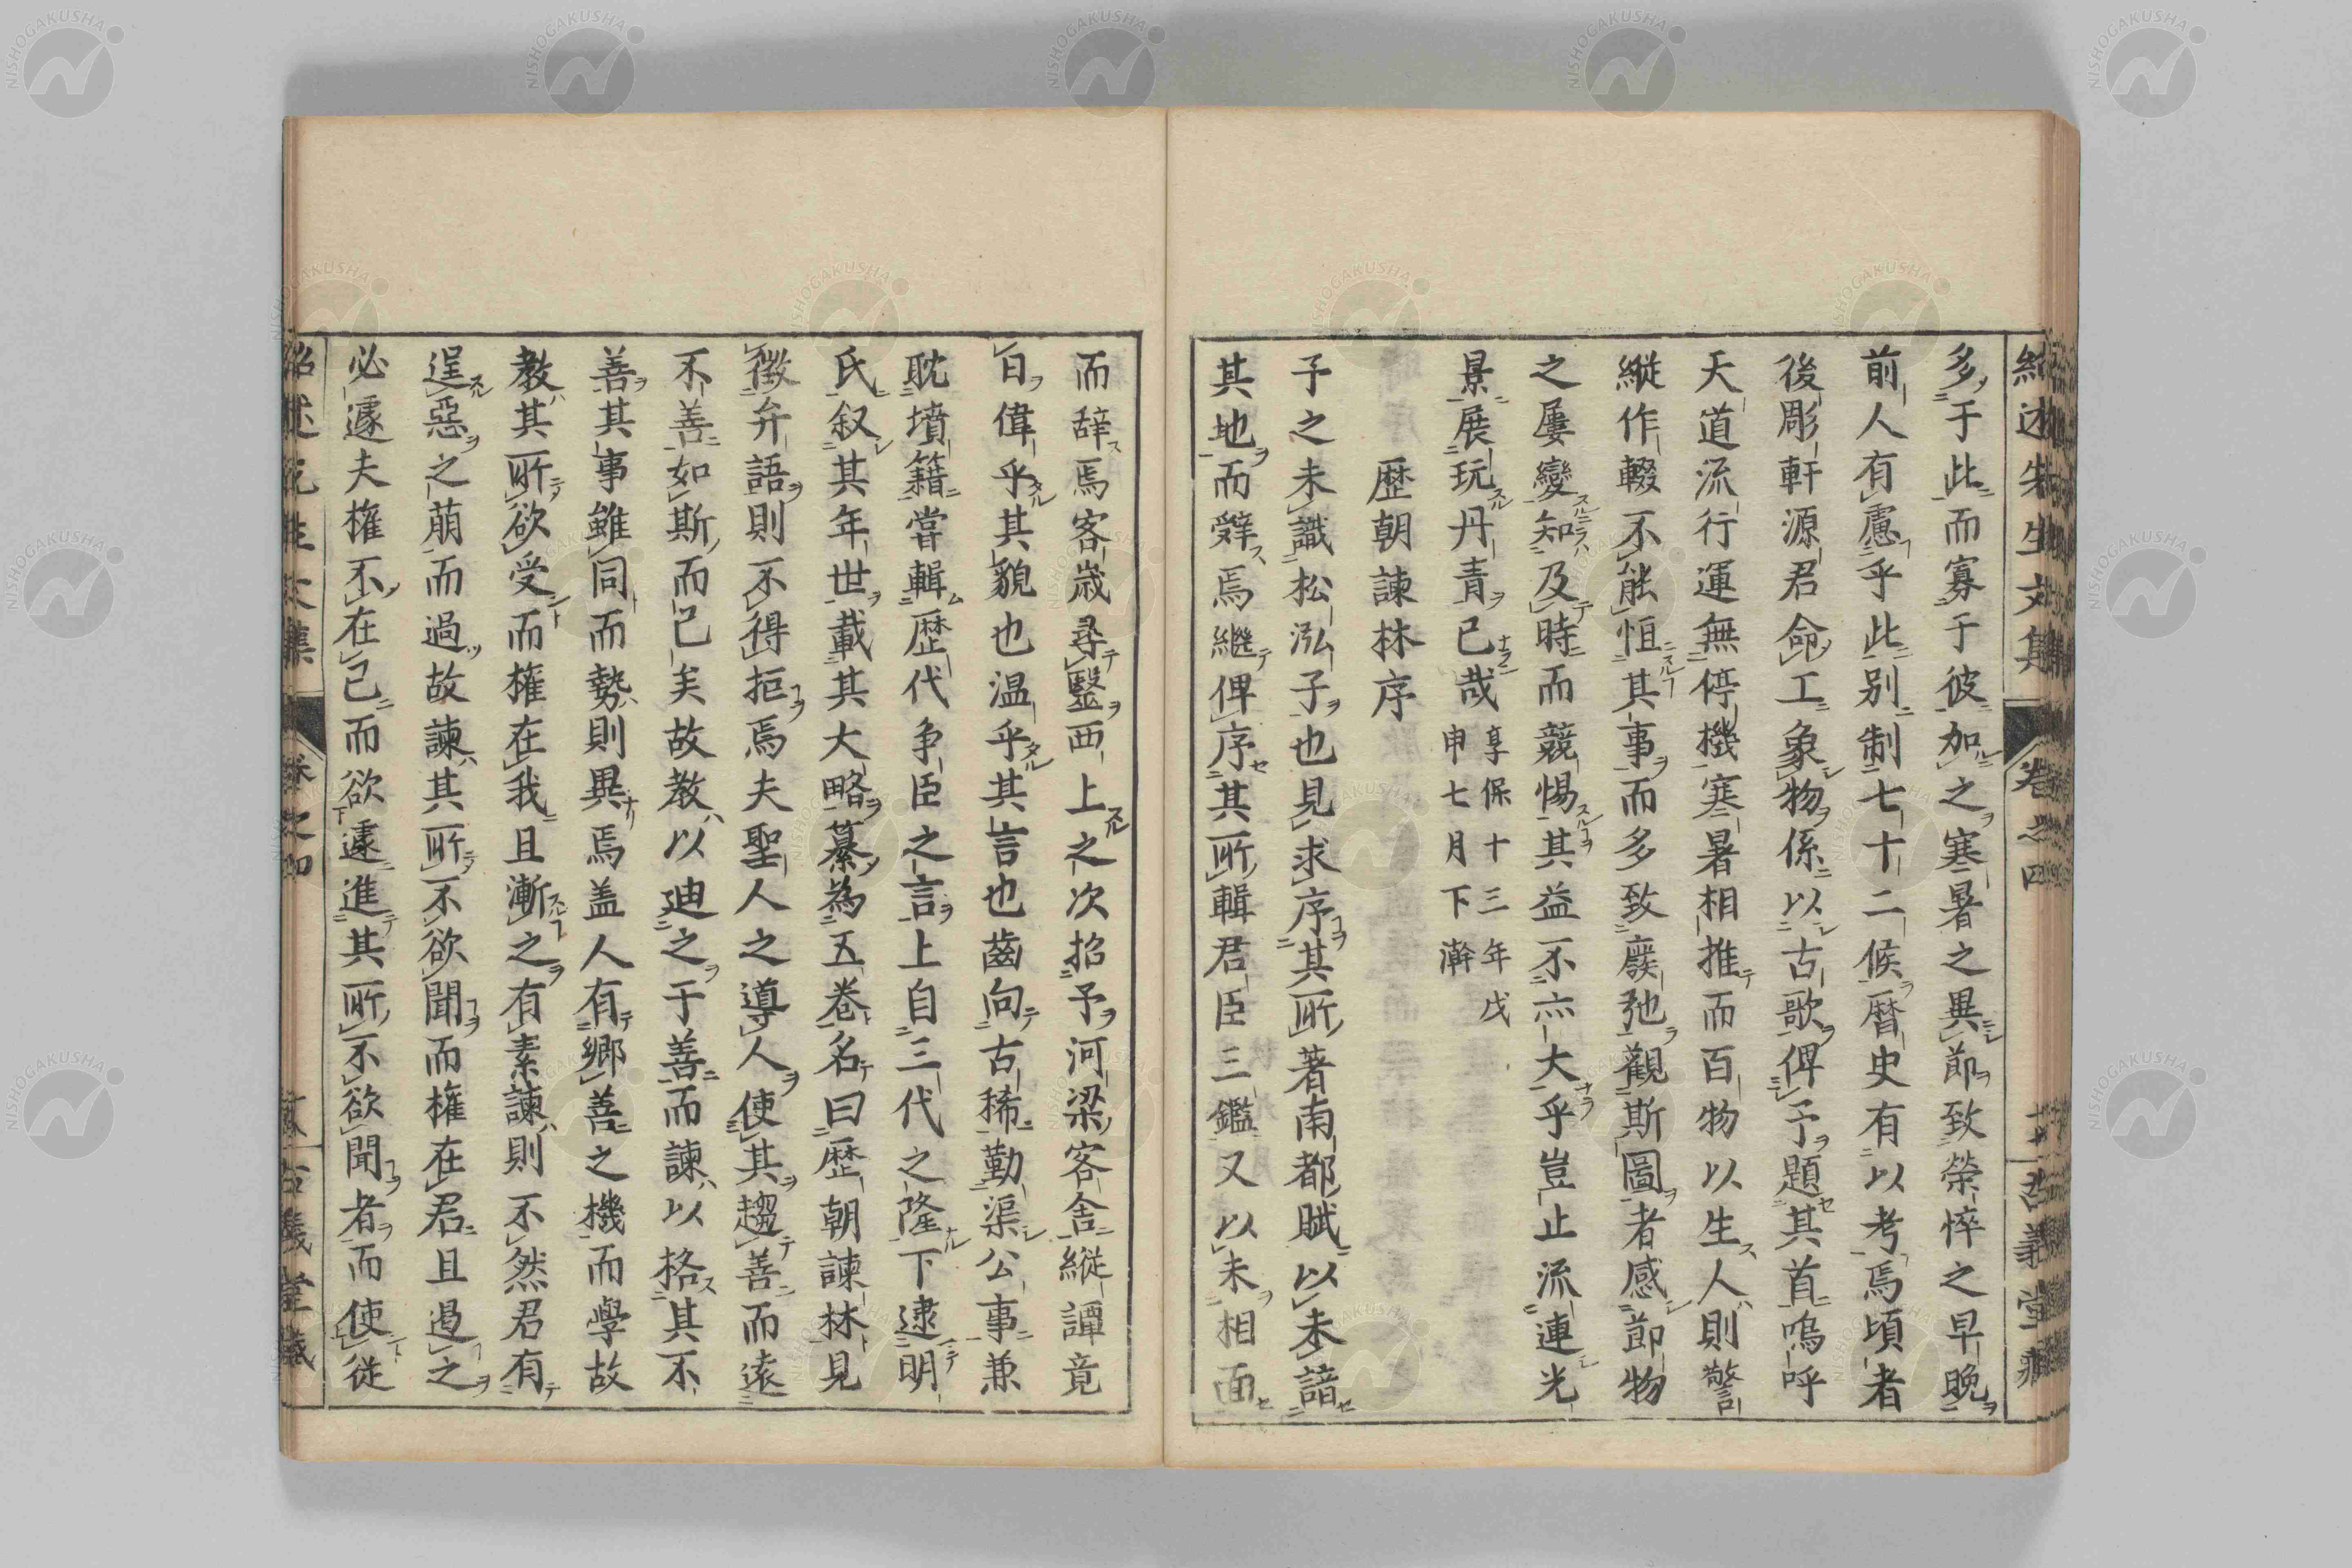 紹述先生文集 卷之四 古義堂藏
多于此而寡于彼加之寒暑之異節致榮悴之早晩
前人有慮乎此別制七十二候暦史有以考焉頃者
後彫軒源君命工象物係以古歌俾予題其首嗚呼
天道流行運無停機寒暑相推而百物以生人則警
縱作輟不能恒其事而多致廢弛觀斯圖者感節物
之屢變知及時而競惕其益不亦大乎豈止流連光
景展玩丹青已哉享保十三年戊申七月下澣
歴朝諫林序
予之未識松泓子也見求序其所著南都賦以未諳
其地而辤焉繼俾序其所輯君臣三鑑又以未相面
而辤焉客歳尋毉西上之次招予河梁客舎縱譚竟
日偉乎其貌也温乎其言也齒向古稀勤渠公事兼
耽墳籍甞輯歴代争臣之言上自三代之隆下逮明
氏叙其年世載其大略纂為五巻名曰歴朝諫林見
徵弁語則不得拒焉夫聖人之導人使其趨善而遠
不善如斯而已矣故教以迪之于善而諫以格其不
善其事雖同而勢則異焉盖人有郷善之機而學故
教其所欲受而權在我且漸之有素諫則不然君有
逞惡之萠而過故諫其所不欲聞而權在君且遏之
必遽夫權不在己而欲遽進其所不欲聞者而使従
紹述先生文集 卷之四 古義堂藏